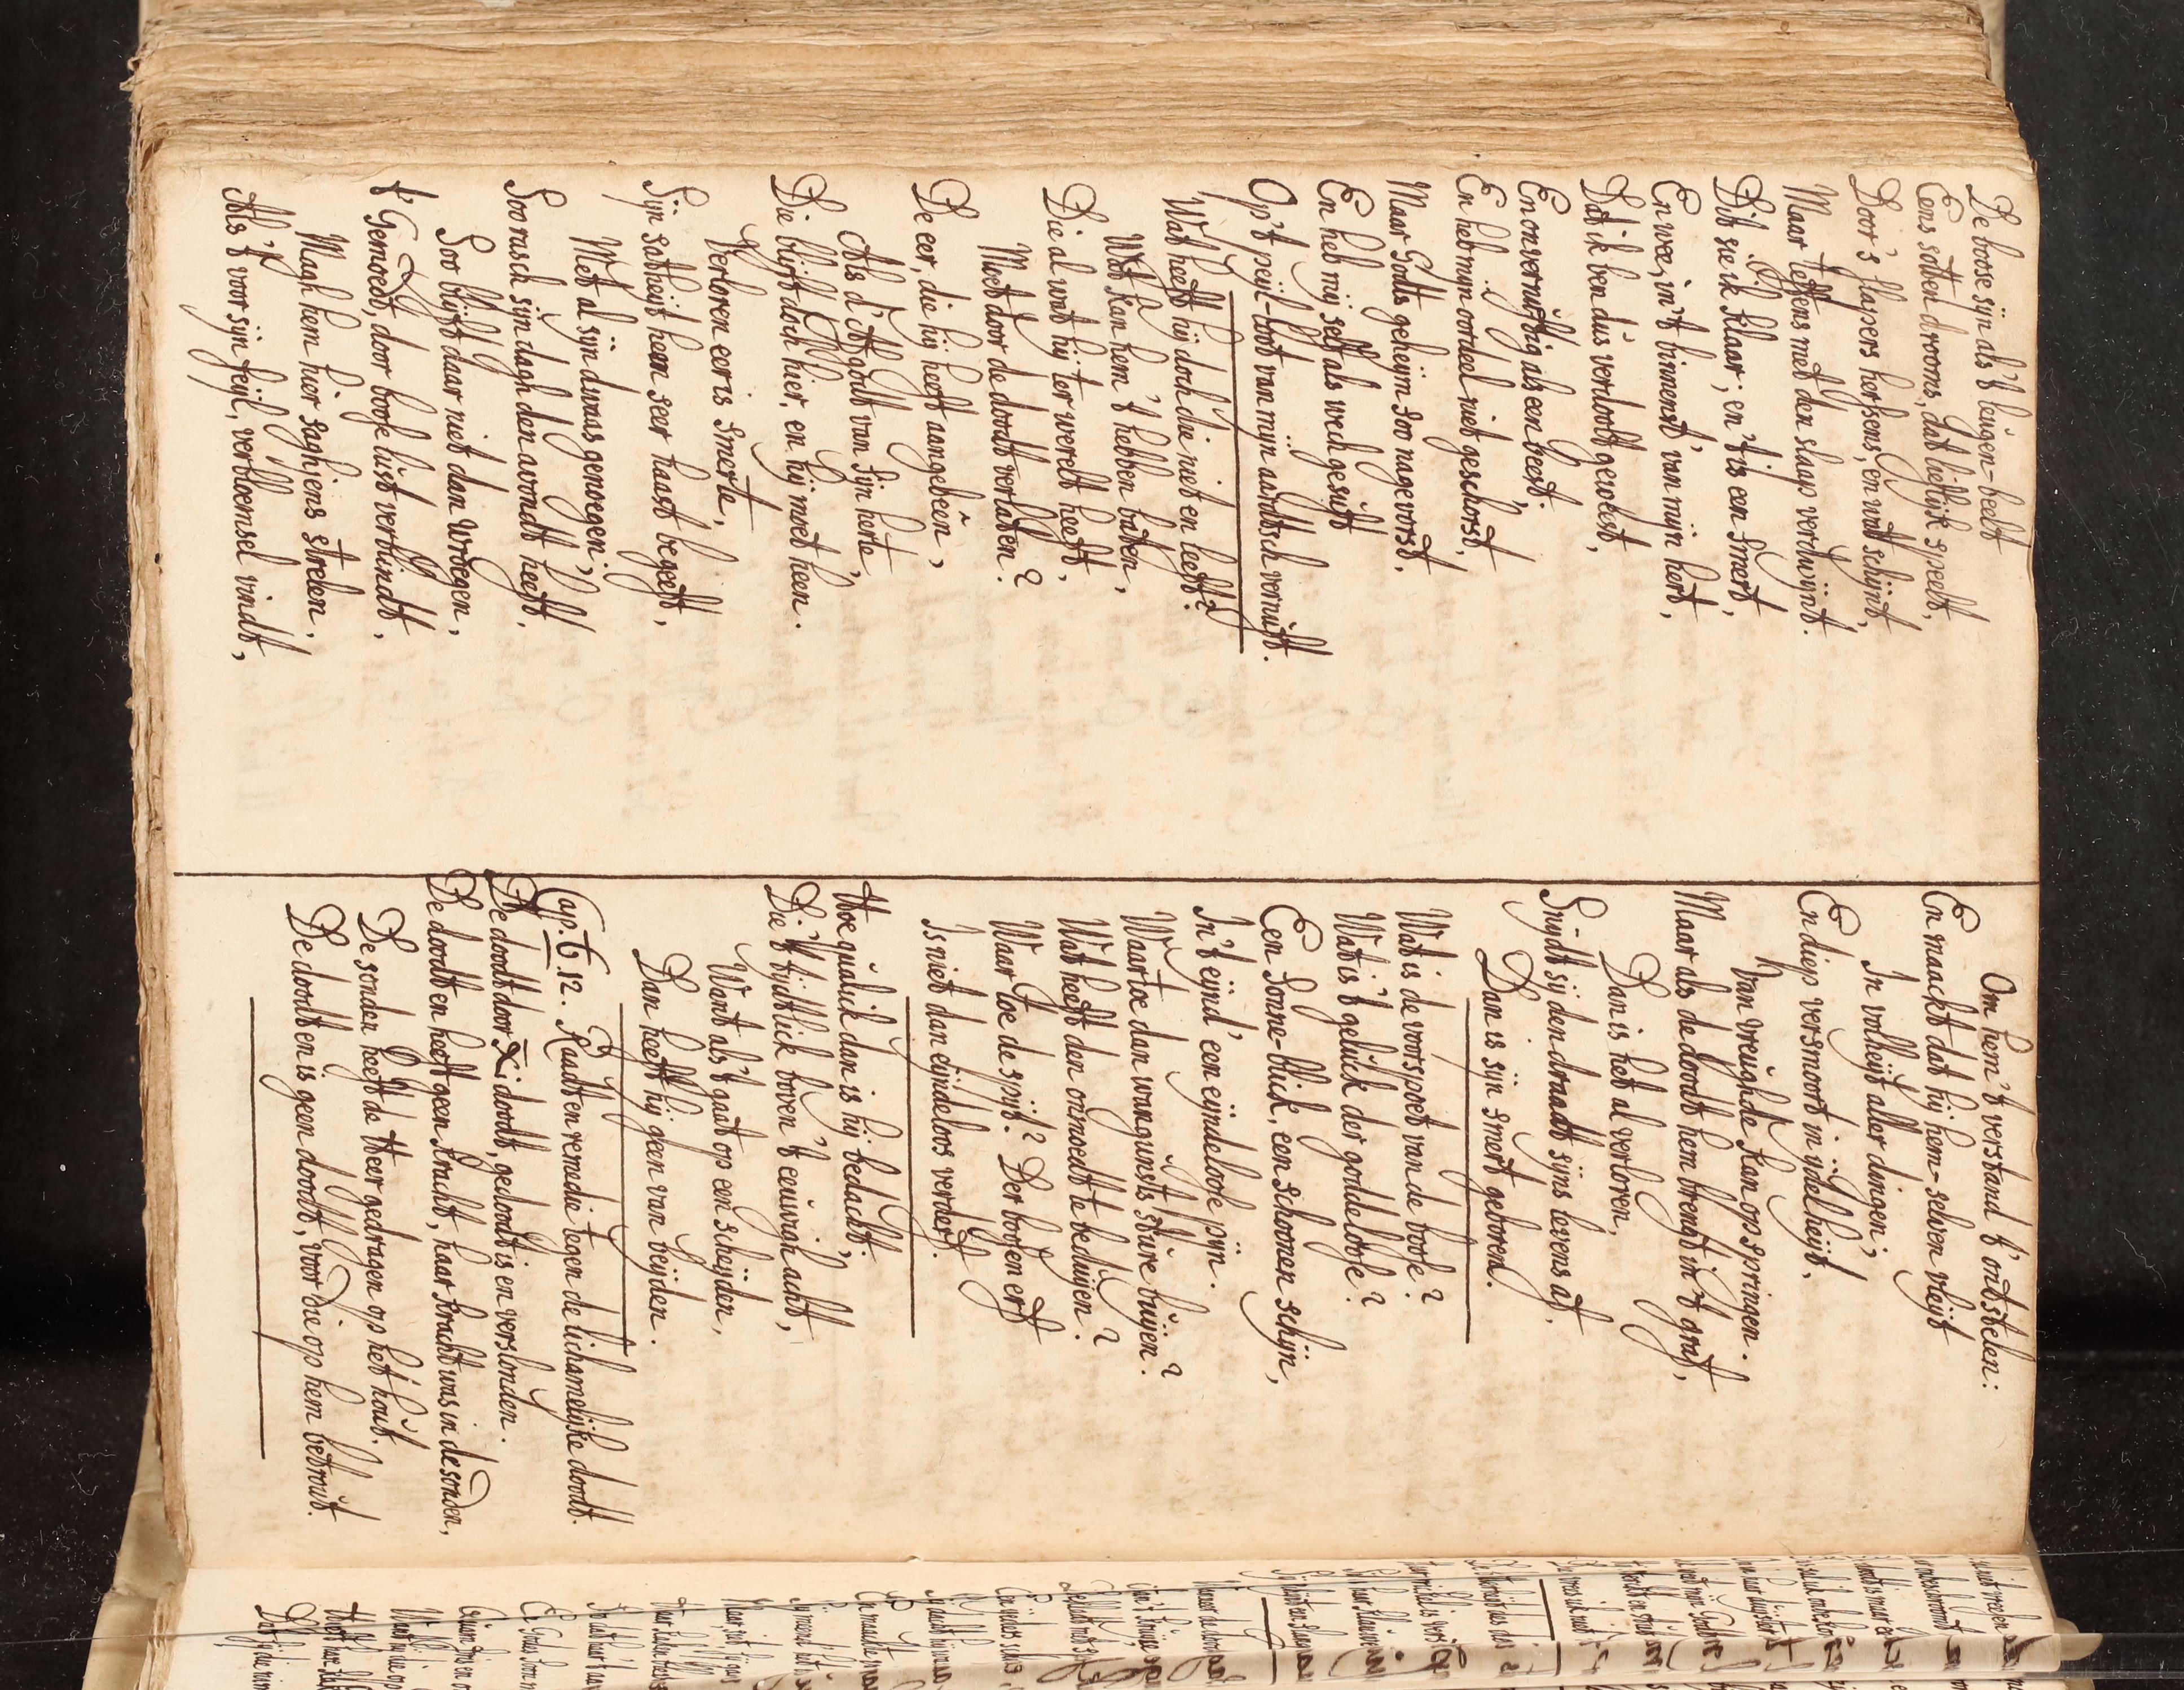 De boose sijn als 't leugen-beelt
Eens sotten drooms, dat lieflijk speelt,
Door 's slapers herssens, en wat schijnt,
Maar teffens met den slaap verdwijnt.
Dit sie ik klaar; en 't is een smert,
En wee, in 't binnenst' van mijn hert,
Dat ik ben dus verdooft geweest,
En onvernuftig als een beest;
En heb mijn oordeel niet geschorst,
Maar Godts geheijm soo nagevorst.
En heb mij self als wech gesuft
Op 't peijl-loot van mijn aardtsch vernuft.
Wat heeft hij doch die niet en leeft?
Wat kan hem 't hebben baten,
Die al wat hij ter werelt heeft,
Moet door de doodt verlaten?
De eer, die hij heeft aangebeên,
Als d' Afgodt van sijn herte,
Die blijft doch hier, en hij moet heen.
Verloren eer is smerte.
Sijn satheijt hem seer haast begeeft,
Met al sijn dwaas genoegen;
Soo rasch sijn dagh den avondt heeft.
Soo blijft daar niet dan wroegen,
't Gemoedt, door boose lust verblindt,
Magh hem hier saghjens strelen;
Als 't voor sijn feijl, verbloemsel vindt,
Om hem 't verstand t' ontstelen:
En maackt dat hij hem-selven vleijt
In volheijt aller dingen;
En diep versmoort in ijdelheijt,
Van vreughde kan opspringen.
Maar als de doodt hem brengt in 't graf,
Dan is het al verloren,
Snijdt sij den draadt sijns levens af,
Dan is sijn smert geboren.
Wat is de voorspoet van de boose?
Wat is 't geluck der goddeloose?
Een Sonne-blick, een schoonen schijn,
In 't eijnd' een eijndeloose pijn.
Waartoe dan wangunsts stuere buijen?
Wat heeft den onmoedt te beduijen?
Waar toe de spijt? Der boosen erf
Is niet dan eijndeloos verderf.
Hoe qualick dan is hij bedacht;
Die 't tijdtlick boven 't eeuwigh acht,
Want als 't gaat op een scheijden,
Dan heeft hij geen van beijden.
Cap. 6. 12. Raadt en remedie tegen de lichamelijke doodt.
De doodt door X:i doodt, gedoodt is en verslonden.
De doodt en heeft geen kracht, haar kracht was in de sonden,
De sonden heeft de Heer gedragen op het hout.
De doodt en is geen doodt, voor die op hem betrout.